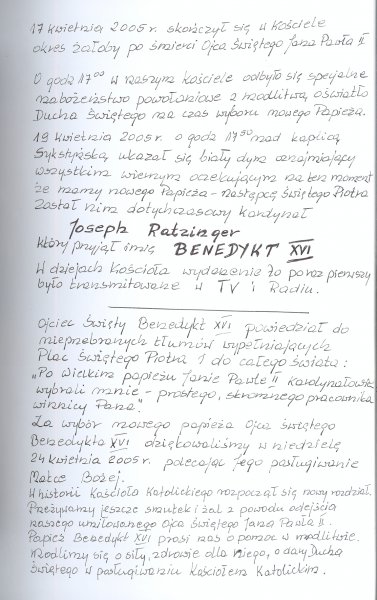 17 kwietnia 2005 r. skończył się w Kościele
okres żałoby po śmierci Ojca Świętego Jana Pawła II
O godz 17⁰⁰ w naszym kościele odbyło się specjalne
nabożeństwo powołaniowe z modlitwą o światło
Ducha Świętego na czas wyboru nowego Papieża.
19 kwietnia 2005 r. o godz 17⁵⁰ nad kaplicą
Sykstyńską ukazał się biały dym oznajmiający
wszystkim wiernym oczekującym na ten moment
że mamy nowego Papieża - następcę Świętego Piotra
został nim dotychczasowy kardynał
Joseph Ratzinger
który przyjął imię BENEDYKT XVI
W dziejach Kościoła wydarzenie to po raz pierwszy
było transmitowane w TV i Radiu.
Ojciec Święty Benedykt XVI powiedział do
nieprzebranych tłumów wypełniających
Plac Świętego Piotra i do całego świata:
„Po wielkim papieżu Janie Pawle II kardynałowie
wybrali mnie - prostego, skromnego pracownika
winnicy Pana."
Za wybór nowego papieża Ojca Świętego
Benedykta XVI dziękowaliśmy w niedzielę
24 kwietnia 2005 r. polecając Jego posługiwanie
Matce Bożej.
W historii Kościoła Katolickiego rozpoczął się nowy rozdział.
Przeżywamy jeszcze smutek i żal z powodu odejścia
naszego umiłowanego Ojca Świętego Jana Pawła II.
Papież Benedykt XVI prosi nas o pomoc w modlitwie.
Módlimy się o siły, zdrowie dla niego, o dary Ducha
Świętego w posługiwaniu Kościołem Katolickim.